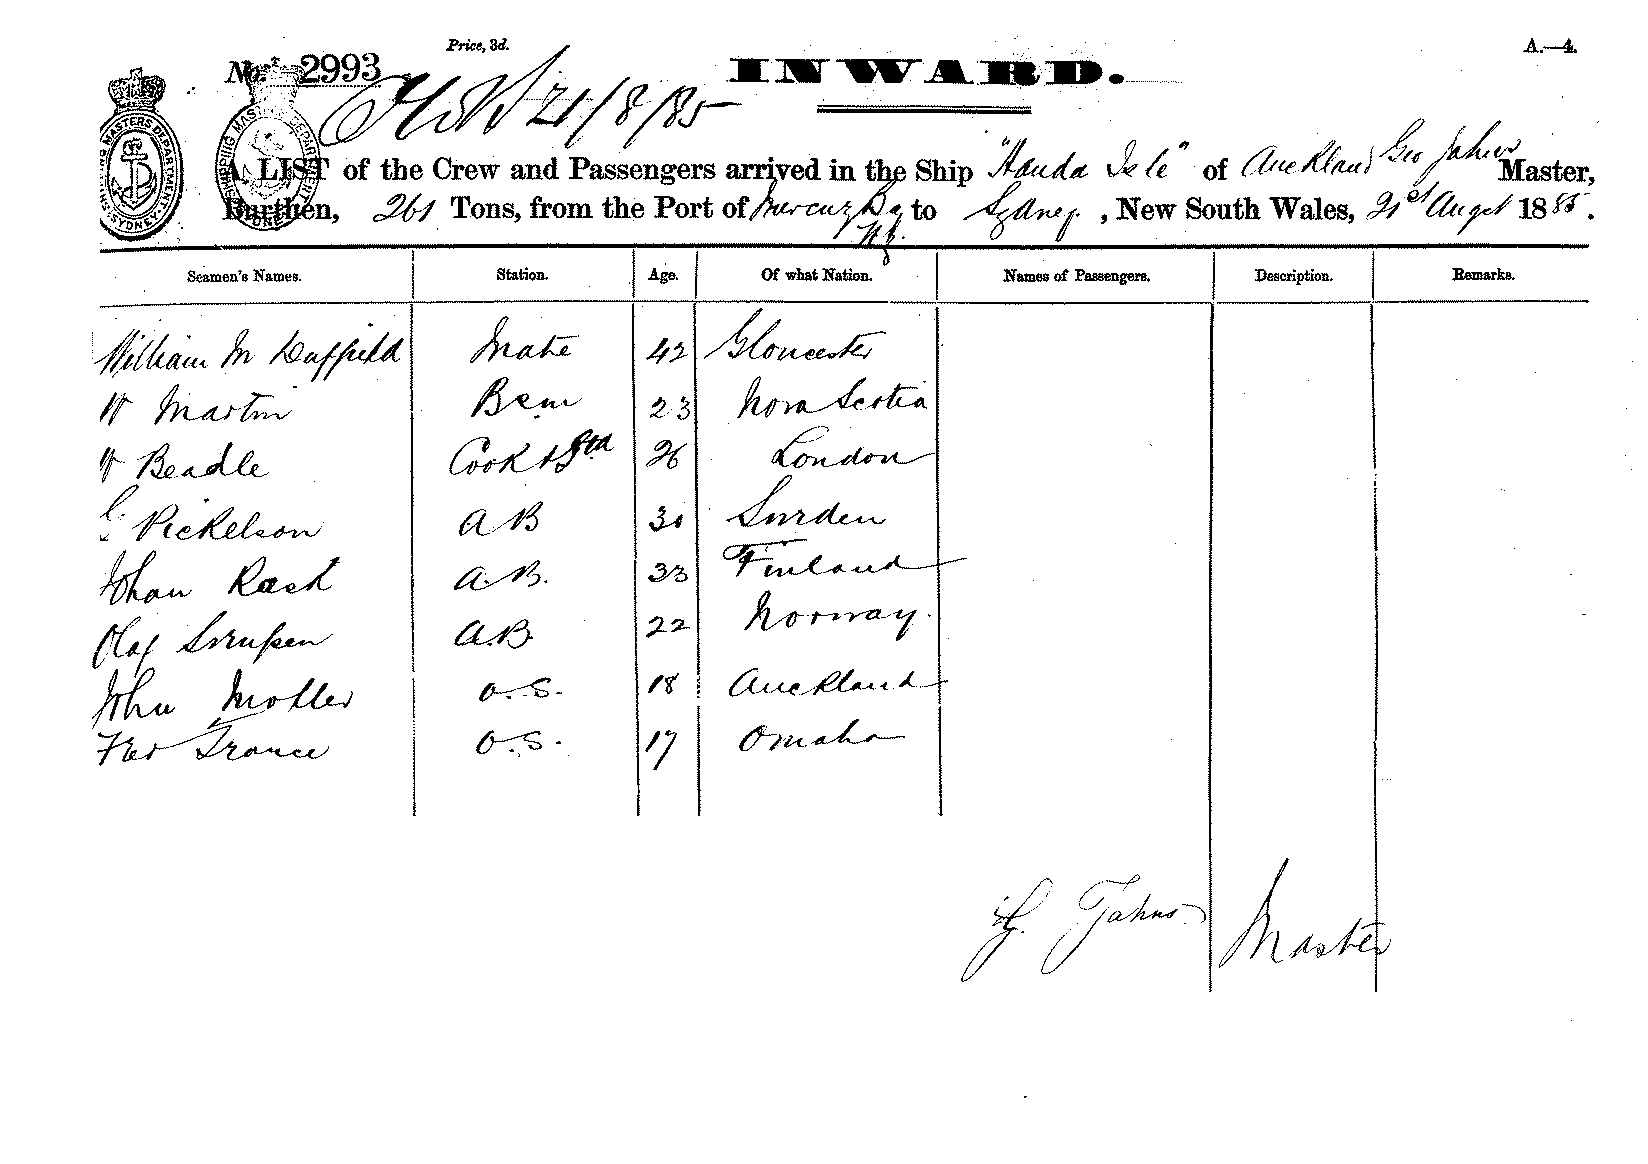 Price, 3d.
A.—4.
No. 2993
INWARD.
21/8/85
SHIPPING MASTERS DEPARTMENT SYDNEY
A LIST of the Crew and Passengers arrived in the Ship "Handa Isle" of Auckland Geo Jahns Master,
Burthen, 261 Tons, from the Port of Mercury By NZ. to Sydney, New South Wales, 21st Augst 1885.
Seamen's Names. Station. Age. Of what Nation. Names of Passengers. Description. Remarks.
William M Duffield Mate 42 Gloucester
W Martin Bsm 23 Nova Scotia
W Beadle Cook & Std 26 London
Pickelson AB 30 Sweden
Johan Rask A.B. 33 Finland
Olaf A.B. 22 Norway.
John Moller O.S. 18 Auckland
Fred France O.S. 17 Omaha
G. Jahns Master